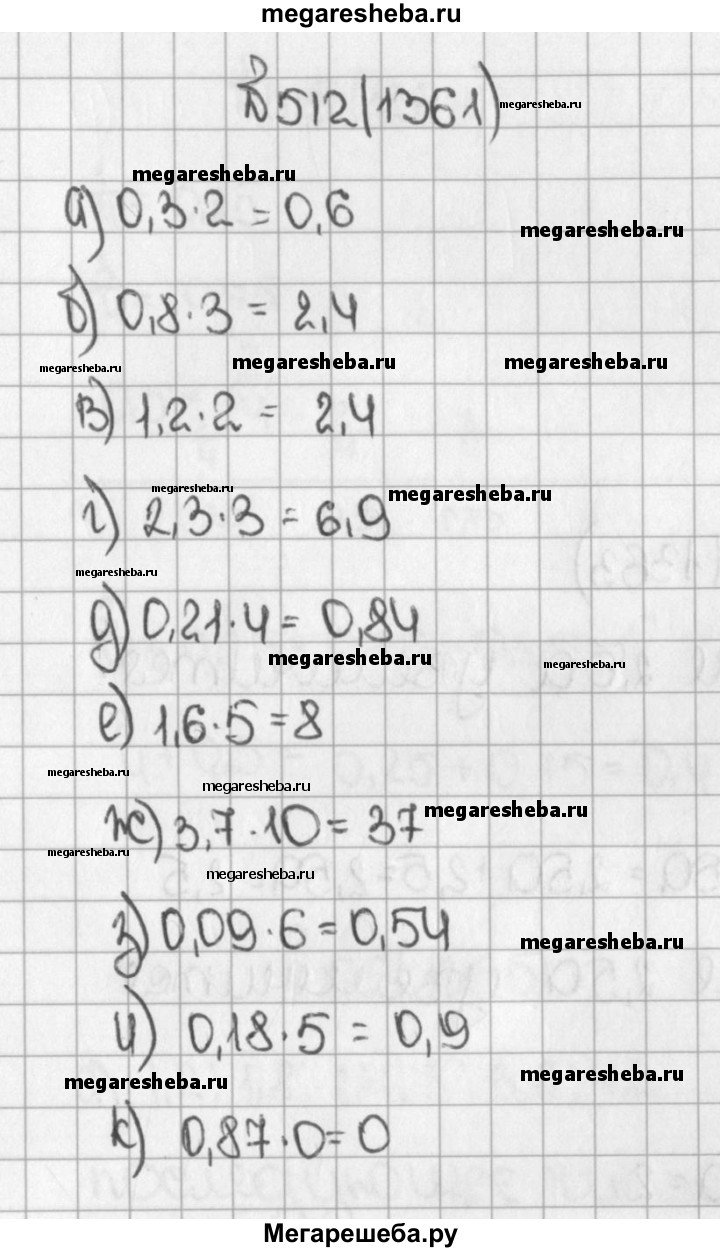 megaresheba.ru
№ 512(1361) megaresheba.ru
megaresheba.ru
а) 0,3·2 = 0,6
megaresheba.ru
б) 0,8·3 = 2,4
megaresheba.ru megaresheba.ru megaresheba.ru
в) 1,2·2 = 2,4
megaresheba.ru megaresheba.ru
г) 2,3·3 = 6,9
megaresheba.ru
д) 0,21·4 = 0,84
megaresheba.ru megaresheba.ru
е) 1,6·5 = 8
megaresheba.ru megaresheba.ru
ж) 3,7·10 = 37 megaresheba.ru
megaresheba.ru megaresheba.ru
з) 0,09·6 = 0,54
megaresheba.ru
и) 0,18·5 = 0,9
megaresheba.ru megaresheba.ru
к) 0,87·0 = 0
Мегарешеба.ру